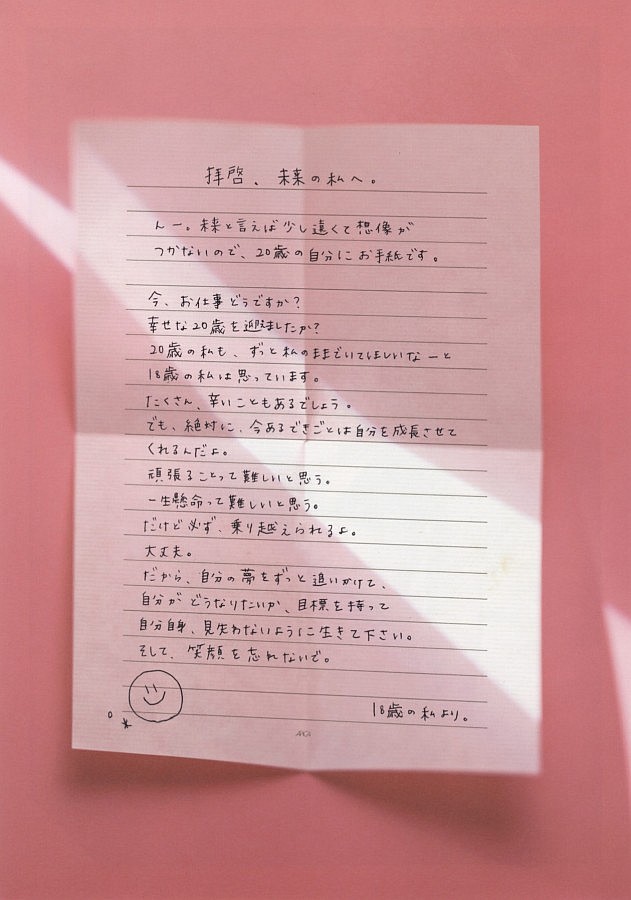 拝啓、未来の私へ。
んー。未来と言えば少し遠くて想像が
つかないので、20歳の自分にお手紙です。
今、お仕事どうですか?
幸せな20歳を迎えましたか?
20歳の私も、ずっと私のままでいてほしいなーと
18歳の私は思っています。
たくさん、辛いこともあるでしょう。
でも、絶対に、今あるできごとは自分を成長させて
くれるんだよ。
頑張ることって難しいと思う。
一生懸命って難しいと思う。
だけど必ず、乗り越えられるよ。
大丈夫。
だから、自分の夢をずっと追いかけて、
自分がどうなりたいか、目標を持って
自分自身、見失わないように生きて下さい。
そして、笑顔を忘れないで。
18歳の私より。